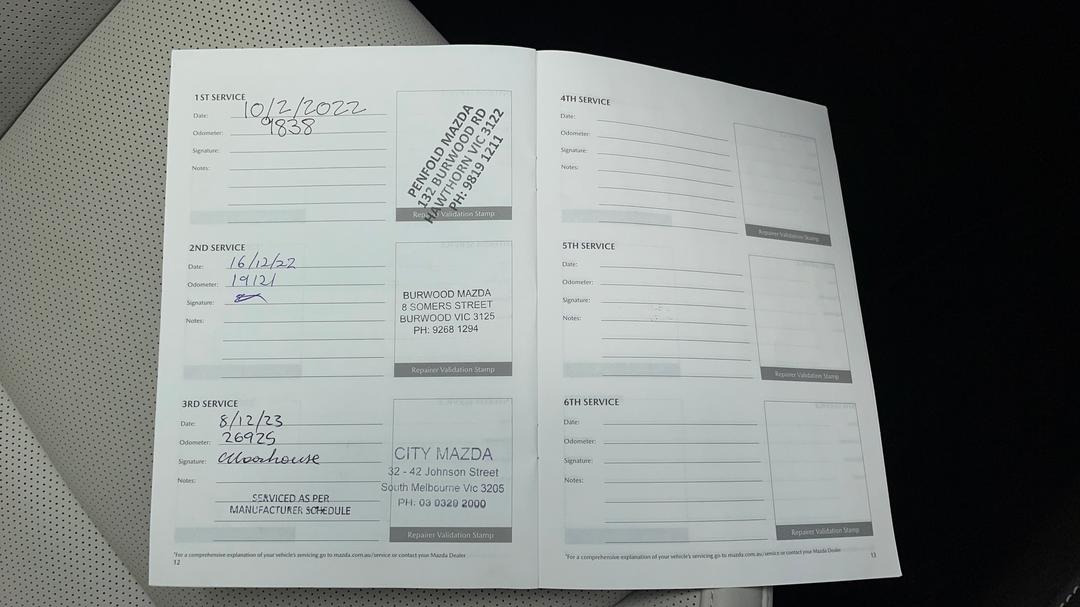 1ST SERVICE
Date: 10/2/2022
Odometer: 9838
Signature:
Notes:
PENFOLD MAZDA
132 BURWOOD RD
HAWTHORN VIC 3122
PH: 9819 1211
Repairer Validation Stamp
2ND SERVICE
Date: 16/12/22
Odometer: 19121
Signature:
Notes:
BURWOOD MAZDA
8 SOMERS STREET
BURWOOD VIC 3125
PH: 9268 1294
Repairer Validation Stamp
3RD SERVICE
Date: 8/12/23
Odometer: 26925
Signature: CMoorhouse
Notes:
SERVICED AS PER
MANUFACTURER SCHEDULE
CITY MAZDA
32 - 42 Johnson Street
South Melbourne Vic 3205
PH: 03 9329 2000
Repairer Validation Stamp
*For a comprehensive explanation of your vehicle's servicing go to mazda.com.au/service or contact your Mazda Dealer
12
4TH SERVICE
Date:
Odometer:
Signature:
Notes:
Repairer Validation Stamp
5TH SERVICE
Date:
Odometer:
Signature:
Notes:
Repairer Validation Stamp
6TH SERVICE
Date:
Odometer:
Signature:
Notes:
Repairer Validation Stamp
*For a comprehensive explanation of your vehicle's servicing go to mazda.com.au/service or contact your Mazda Dealer
13